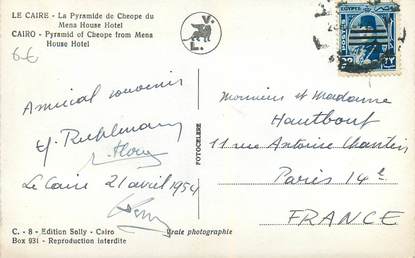 LE CAIRE - La Pyramide de Cheope du
Mena House Hotel
CAIRO - Pyramid of Cheope from Mena
House Hotel
66
V.
L.
EGYPTE
POSTES
Amical souvenir
Le Caire 21 avril 1954
C. - 8 - Edition Solly - Cairo
Box 931 - Reproduction interdite
Vraie photographie
FOTOCELERE
Monsieur et Madame
Hautbout
11 rue Antoine Chantin
Paris 14e
FRANCE